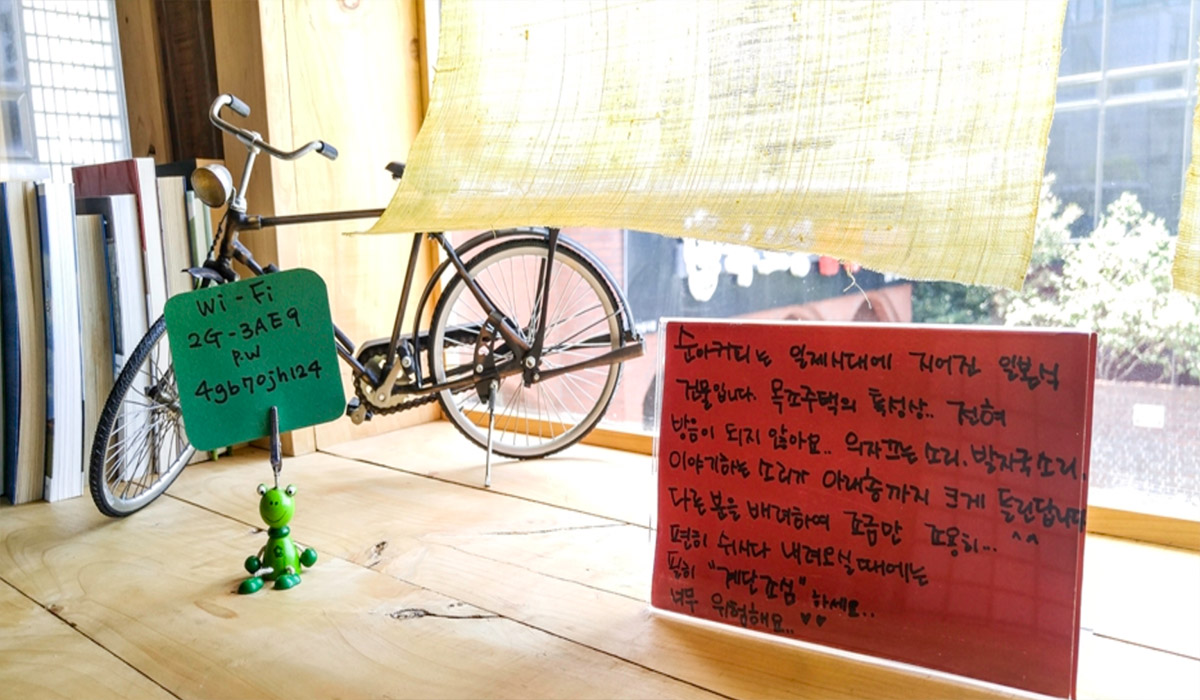 Wi-Fi
2G-3AE9
P.W
49b70jh124
순아커피는 일제시대에 지어진 일본식
건물입니다. 목조주택의 특성상.. 전혀
방음이 되지 않아요.. 의자끄는소리. 발자국소리.
이야기하는 소리가 아래층까지 크게 들린답니다
다른분을 배려하여 조금만 조용히... ^^
편히 쉬시다 내려오실때에는
필히 "계단조심" 하세요..
너무 위험해요.. ♥♥